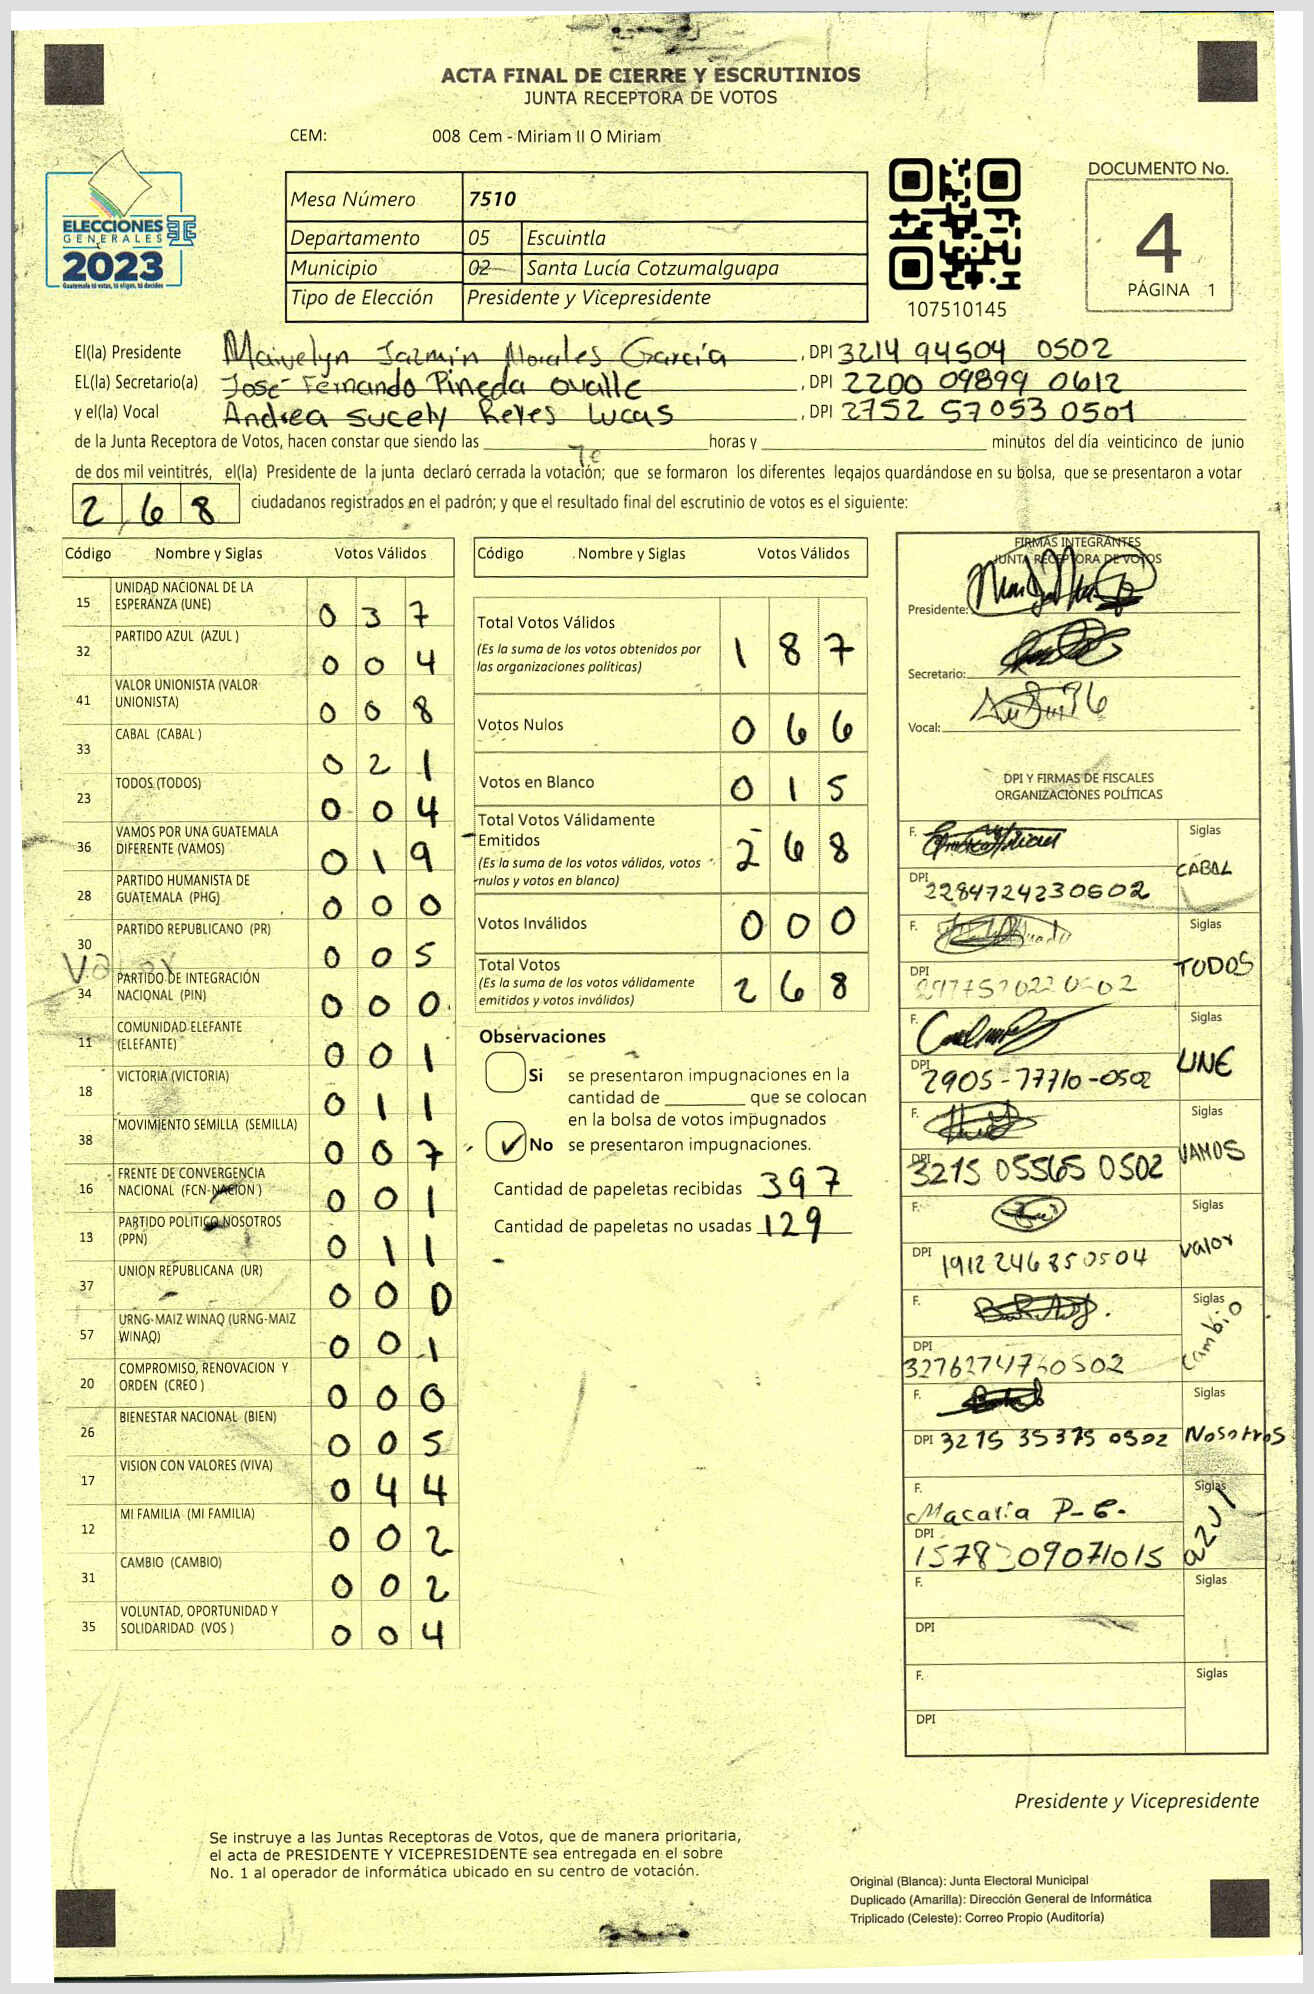 ACTA FINAL DE CIERRE Y ESCRUTINIOS
JUNTA RECEPTORA DE VOTOS
CEM: 008 Cem - Miriam II O Miriam
ELECCIONES
GENERALES
2023
Guatemala tú votas, tú eliges, tú decides
Mesa Número 7510
Departamento 05 Escuintla
Municipio 02 Santa Lucía Cotzumalguapa
Tipo de Elección Presidente y Vicepresidente
107510145
DOCUMENTO No.
4
PÁGINA 1
El(la) Presidente Maivelyn Jazmin Morales García , DPI 3214 94504 0502
EL(la) Secretario(a) José Fernando Pineda Ovalle , DPI 2200 09899 0612
y el(la) Vocal Andrea Sucely Reyes Lucas , DPI 2752 57053 0501
de la Junta Receptora de Votos, hacen constar que siendo las horas y minutos del día veinticinco de junio
de dos mil veintitrés, el(la) Presidente de la junta declaró cerrada la votación; que se formaron los diferentes legajos quardándose en su bolsa, que se presentaron a votar
268 ciudadanos registrados en el padrón; y que el resultado final del escrutinio de votos es el siguiente:
Código Nombre y Siglas Votos Válidos
15 UNIDAD NACIONAL DE LA ESPERANZA (UNE) 037
32 PARTIDO AZUL (AZUL ) 004
41 VALOR UNIONISTA (VALOR UNIONISTA) 008
33 CABAL (CABAL ) 021
23 TODOS (TODOS) 004
36 VAMOS POR UNA GUATEMALA DIFERENTE (VAMOS) 019
28 PARTIDO HUMANISTA DE GUATEMALA (PHG) 000
30 PARTIDO REPUBLICANO (PR) 005
Valor
34 PARTIDO DE INTEGRACIÓN NACIONAL (PIN) 000
11 COMUNIDAD ELEFANTE (ELEFANTE) 001
18 VICTORIA (VICTORIA) 011
38 MOVIMIENTO SEMILLA (SEMILLA) 007
16 FRENTE DE CONVERGENCIA NACIONAL (FCN-NACIÓN ) 001
13 PARTIDO POLITICO NOSOTROS (PPN) 011
37 UNION REPUBLICANA (UR) 000
57 URNG-MAIZ WINAQ (URNG-MAIZ WINAQ) 001
20 COMPROMISO, RENOVACION Y ORDEN (CREO ) 000
26 BIENESTAR NACIONAL (BIEN) 005
17 VISION CON VALORES (VIVA) 044
12 MI FAMILIA (MI FAMILIA) 002
31 CAMBIO (CAMBIO) 002
35 VOLUNTAD, OPORTUNIDAD Y SOLIDARIDAD (VOS ) 004
Código Nombre y Siglas Votos Válidos
Total Votos Válidos 187
(Es la suma de los votos obtenidos por
las organizaciones políticas)
Votos Nulos 066
Votos en Blanco 015
Total Votos Válidamente
Emitidos 268
(Es la suma de los votos válidos, votos
nulos y votos en blanco)
Votos Inválidos 000
Total Votos 268
(Es la suma de los votos válidamente
emitidos y votos inválidos)
Observaciones
Si se presentaron impugnaciones en la
cantidad de que se colocan
en la bolsa de votos impugnados
✓ No se presentaron impugnaciones.
Cantidad de papeletas recibidas 397
Cantidad de papeletas no usadas 129
FIRMAS INTEGRANTES
JUNTA RECEPTORA DE VOTOS
Presidente:
Secretario:
Vocal:
DPI Y FIRMAS DE FISCALES
ORGANIZACIONES POLÍTICAS
F. Siglas
DPI 2284724230502 CABAL
F. Siglas
DPI TODOS
F. Siglas
DPI 2905-77710-0502 UNE
F. Siglas
DPI 3215 05565 0502 VAMOS
F. Siglas
DPI 1912 246850504 Valor
F. Siglas
DPI 3276274740502 Cambio
F. Siglas
DPI 3215 35375 0502 Nosotros
F. Macaria P-C. Siglas
DPI azul
F. Siglas
DPI
F. Siglas
DPI
Presidente y Vicepresidente
Se instruye a las Juntas Receptoras de Votos, que de manera prioritaria,
el acta de PRESIDENTE Y VICEPRESIDENTE sea entregada en el sobre
No. 1 al operador de informática ubicado en su centro de votación.
Original (Blanca): Junta Electoral Municipal
Duplicado (Amarilla): Dirección General de Informática
Triplicado (Celeste): Correo Propio (Auditoría)